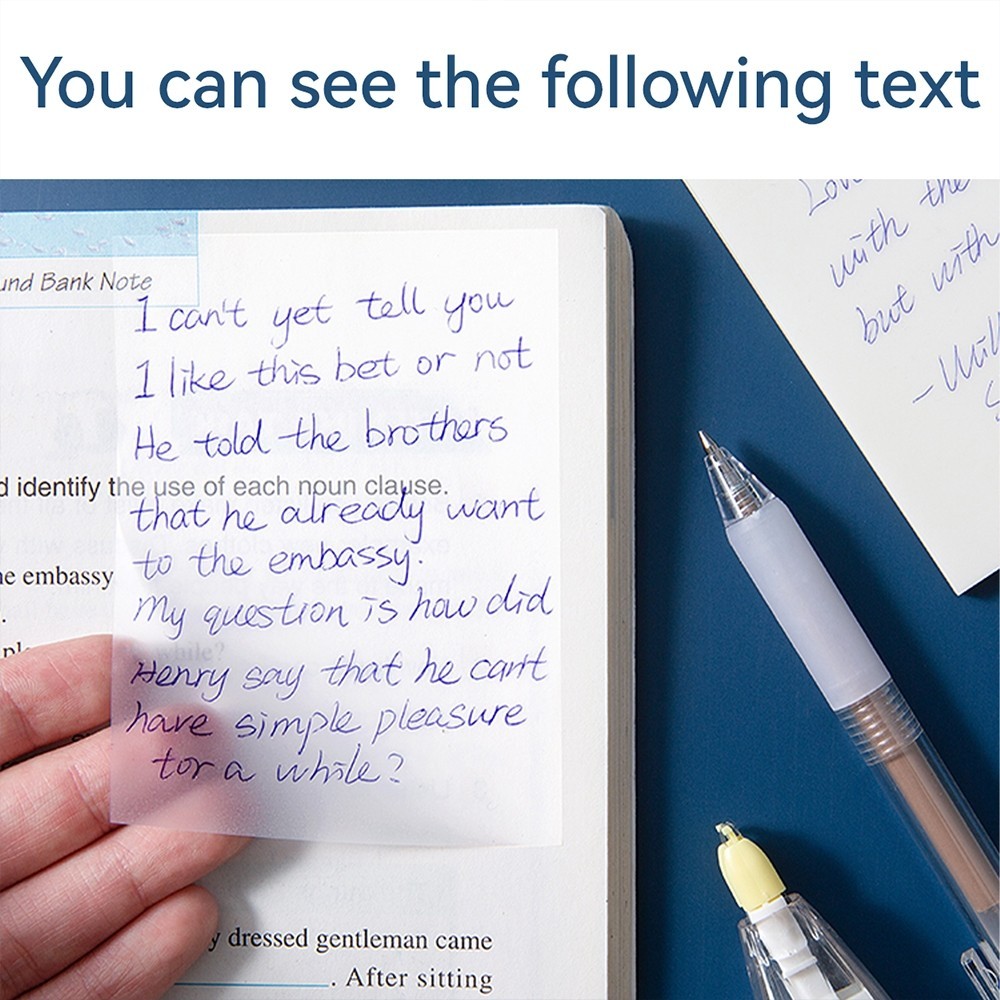 You can see the following text
und Bank Note
I can't yet tell you
I like this bet or not
He told the brothers
d identify the use of each noun clause.
that he already want
to the embassy.
e embassy
My question is how did
while?
Henry say that he can't
have simple pleasure
for a while?
y dressed gentleman came
. After sitting
with the
but with